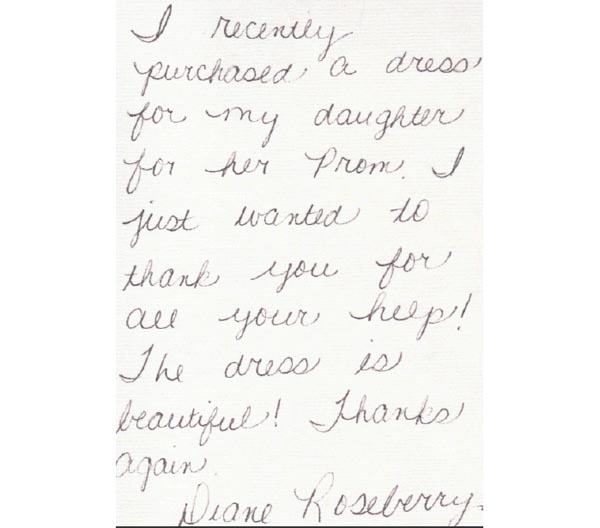 I recently
purchased a dress
for my daughter
for her Prom. I
just wanted to
thank you for
all your help!
The dress is
beautiful! Thanks
again.
Diane Roseberry